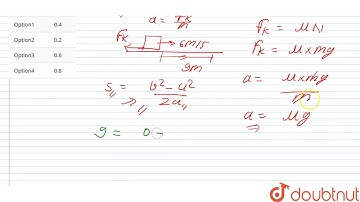 Option1 0.4
Option2 0.2
Option3 0.6
Option4 0.8
a = fK/m
FK
6m/s
9m
S = v²-u²/2a
9 = 0 -
fK = μN
FK = μxmg
a = μxmg/m
a = μg
doubtnut